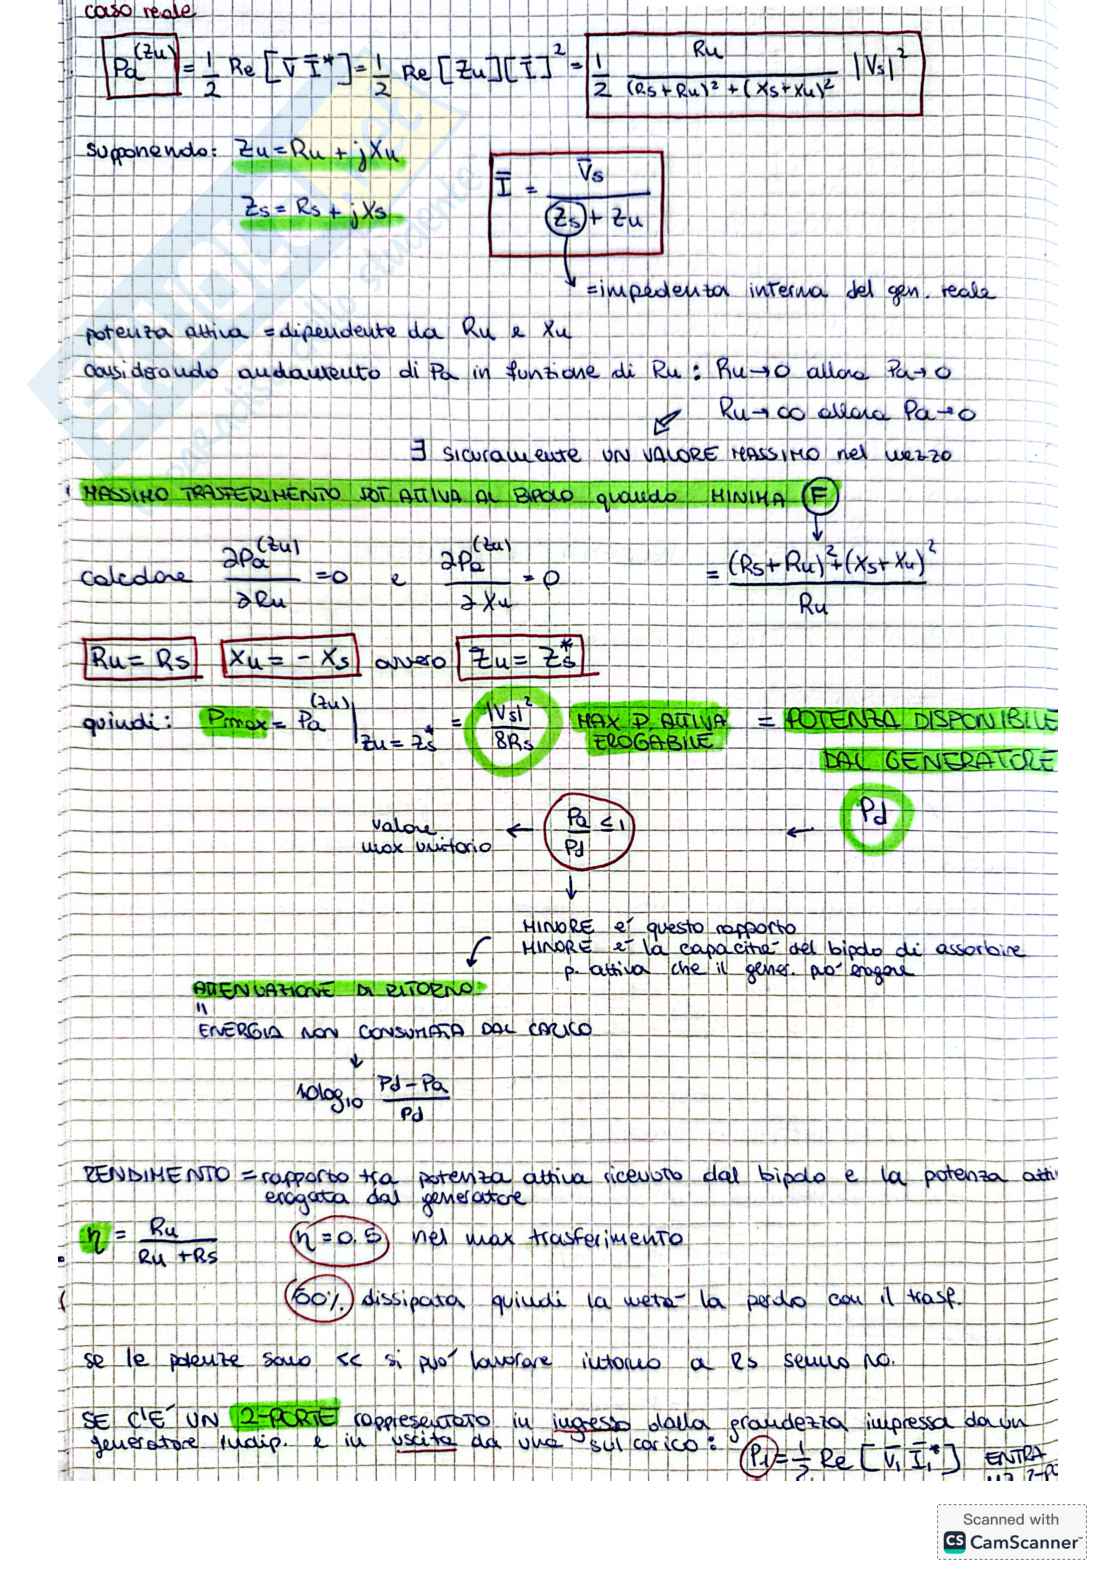 caso reale
Pa^(Zu) = 1/2 Re [V̄ Ī*] = 1/2 Re [Zu][Ī]² = 1/2 Ru/((Rs+Ru)²+(Xs+Xu)²) |Vs|²
supponendo: Zu = Ru + jXu
Zs = Rs + jXs
Ī = V̄s/(Zs + Zu)
= impedenza interna del gen. reale
potenza attiva = dipendente da Ru e Xu
considerando andamento di Pa in funzione di Ru: Ru→0 allora Pa→0
Ru→∞ allora Pa→0
∃ sicuramente UN VALORE MASSIMO nel mezzo
MASSIMO TRASFERIMENTO POT ATTIVA AL BIPOLO quando MINIMA F
calcolare ∂Pa^(Zu)/∂Ru = 0 e ∂Pa^(Zu)/∂Xu = 0 = ((Rs+Ru)²+(Xs+Xu)²)/Ru
Ru = Rs Xu = - Xs ovvero Zu = Zs*
quindi: Pmax = Pa^(Zu)|Zu = Zs* = |Vs|²/8Rs MAX P. ATTIVA EROGABILE = POTENZA DISPONIBILE
DAL GENERATORE
Pd
valore max unitario ← Pa/Pd ≤ 1 ←
MINORE e' questo rapporto
MINORE e' la capacita' del bipolo di assorbire
p. attiva che il gener. puo' erogare
ATTENUAZIONE DI RITORNO
"
ENERGIA NON CONSUMATA DAL CARICO
10log10 (Pd-Pa)/Pd
RENDIMENTO = rapporto tra potenza attiva ricevuta dal bipolo e la potenza atti
erogata dal generatore
η = Ru/(Ru + Rs) η = 0.5 nel max trasferimento
50% dissipata quindi la meta' la perdo con il trasf.
se le potenze sono << si puo' lavorare intorno a Rs senno no.
SE C'E' UN 2-PORTE rappresentato in ingresso dalla grandezza impressa da un
generatore indip. e in uscita da una sul carico: P1 = 1/2 Re [V̄1 Ī1*] ENTRA
Scanned with
CS CamScanner